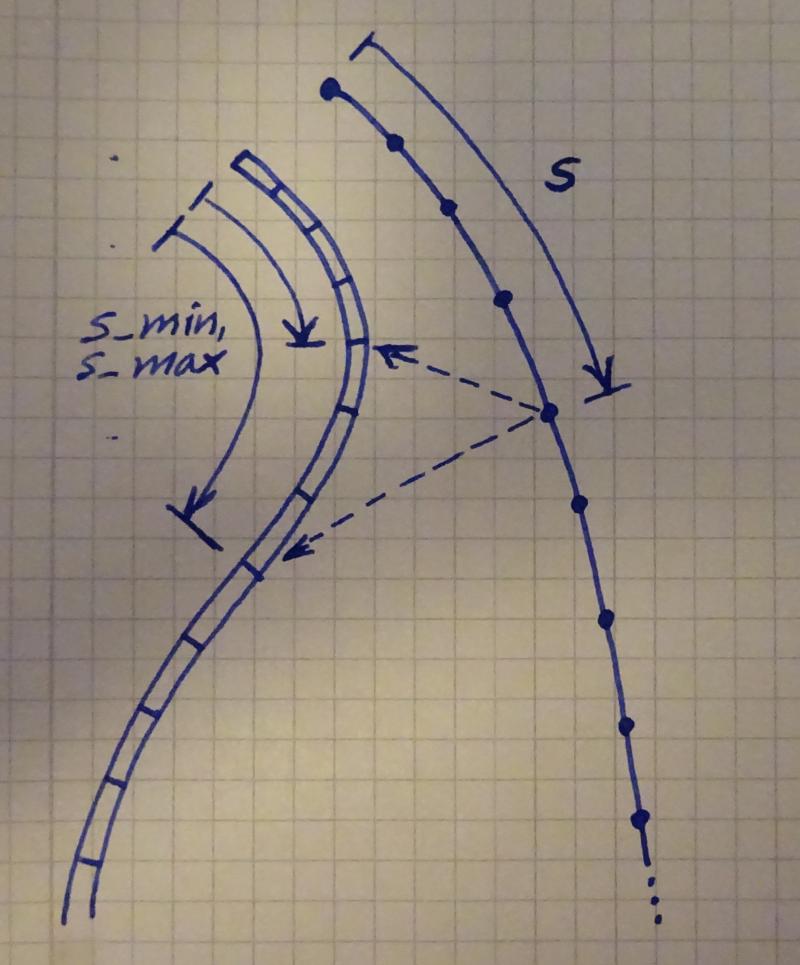 s
s_min,
s_max